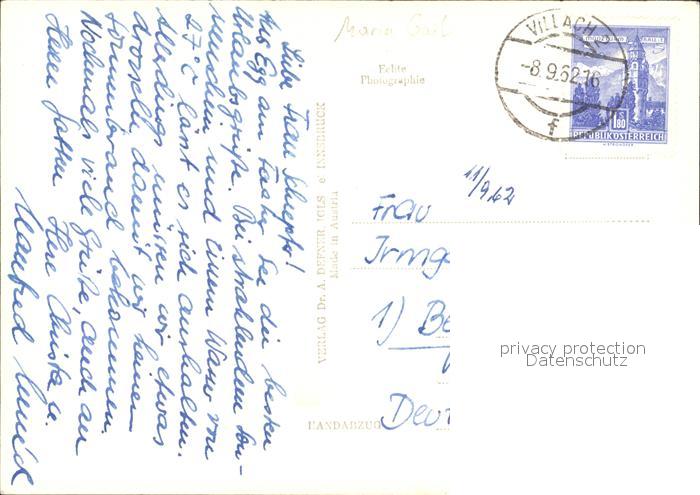 Maria Gail
Echte
Photographie
VILLACH 2
-8.9.62.16
f
1.80
REPUBLIK ÖSTERREICH
Liebe Frau
Aus Egg am Faaker See die besten
Urlaubsgrüße. Bei strahlendem Son-
nenschein und einem Wasser von
27°C lässt es sich aushalten.
Allerdings müssen wir etwas
drosseln damit wir keinen
Sonnenbrand bekommen.
Nochmals viele Grüße, auch an
Ihren Gatten Ihre Christa u.
Manfred
VERLAG Dr. A. DEFNER, IGLS b. INNSBRUCK
Made in Austria
HANDABZUG
11/9.62
Frau
Irmg
1) Be
Deut
privacy protection
Datenschutz